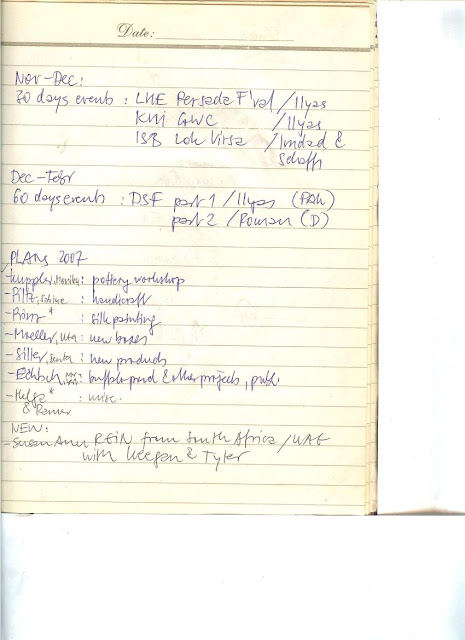 Date:
Nov-Dec:
30 days events : LHE Persada F'val / Ilyas
KHI GWC / Ilyas
ISB Lok Virsa / Imdad &
Schaffi
Dec - Febr
60 days events : DSF part 1 / Ilyas (PAK)
part 2 / Roman (D)
PLANs 2007
-Kuppler, Monika : pottery workshop
-Piltz, : handicraft
- * : silk painting
-Moeller, Uta : new boxes
-Siller, Senta : new products
- : buffalo pond & other projects, publ.
-Helga * : misc.
& Rainer
NEW:
-Susan Ann REIN from South Africa / UAE
with Keegan & Tyler